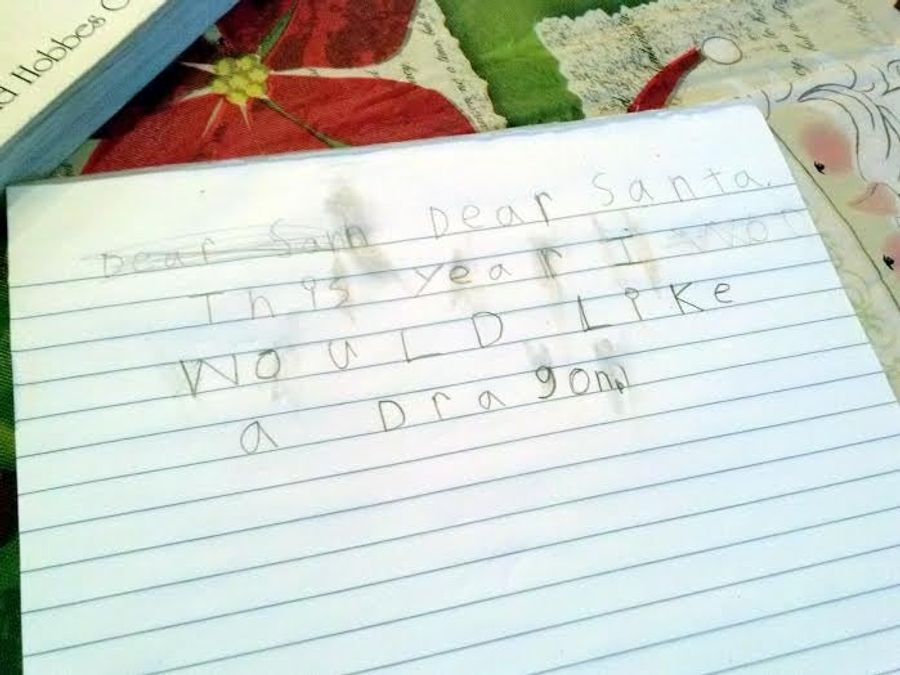 d Hobbes C
Dear San Dear Santa.
This year I wou
WouLD LiKe
a Dragon.